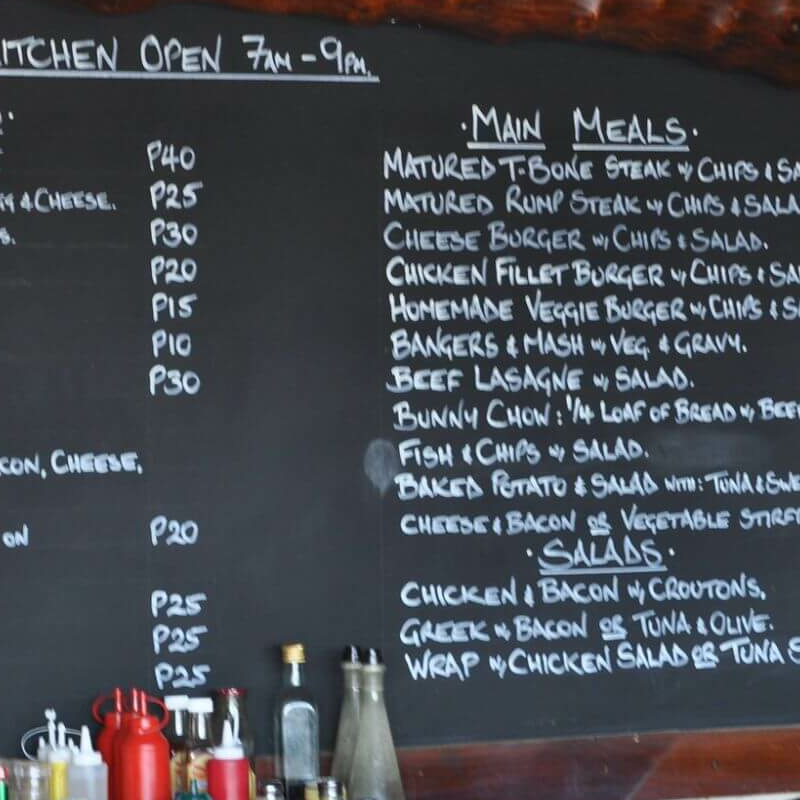 KITCHEN OPEN 7AM - 9PM.
P40
& CHEESE. P25
P30
P20
P15
P10
P30
CHEESE,
ON P20
P25
P25
P25
· MAIN MEALS ·
MATURED T-BONE STEAK w/ CHIPS &
MATURED RUMP STEAK w/ CHIPS &
CHEESE BURGER w/ CHIPS & SALAD.
CHICKEN FILLET BURGER w/ CHIPS &
HOMEMADE VEGGIE BURGER w/ CHIPS &
BANGERS & MASH w/ VEG. & GRAVY.
BEEF LASAGNE w/ SALAD.
BUNNY CHOW: 1/4 LOAF OF BREAD w/ BEEF
FISH & CHIPS w/ SALAD.
BAKED POTATO & SALAD WITH: TUNA &
CHEESE & BACON OR VEGETABLE
· SALADS ·
CHICKEN & BACON w/ CROUTONS.
GREEK w/ BACON OR TUNA & OLIVE.
WRAP w/ CHICKEN SALAD OR TUNA